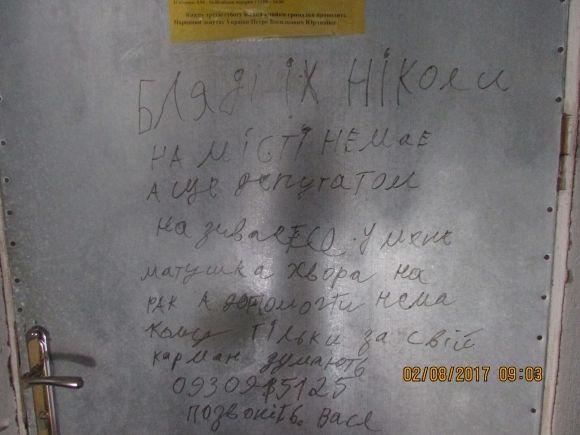 Кожну третю суботу місяця прийом громадян проводить
Народний депутат України Петро Васильович Юрчишин
БЛЯДІ ЇХ НІКОЛИ
НА МІСТІ НЕМАЄ
А ЩЕ депутатом
називаєся. У мене
матушка хвора на
рак А допомогти нема
кому тільки за свій
карман думають
0930915125
позвоніть. Вася
02/08/2017 09:03